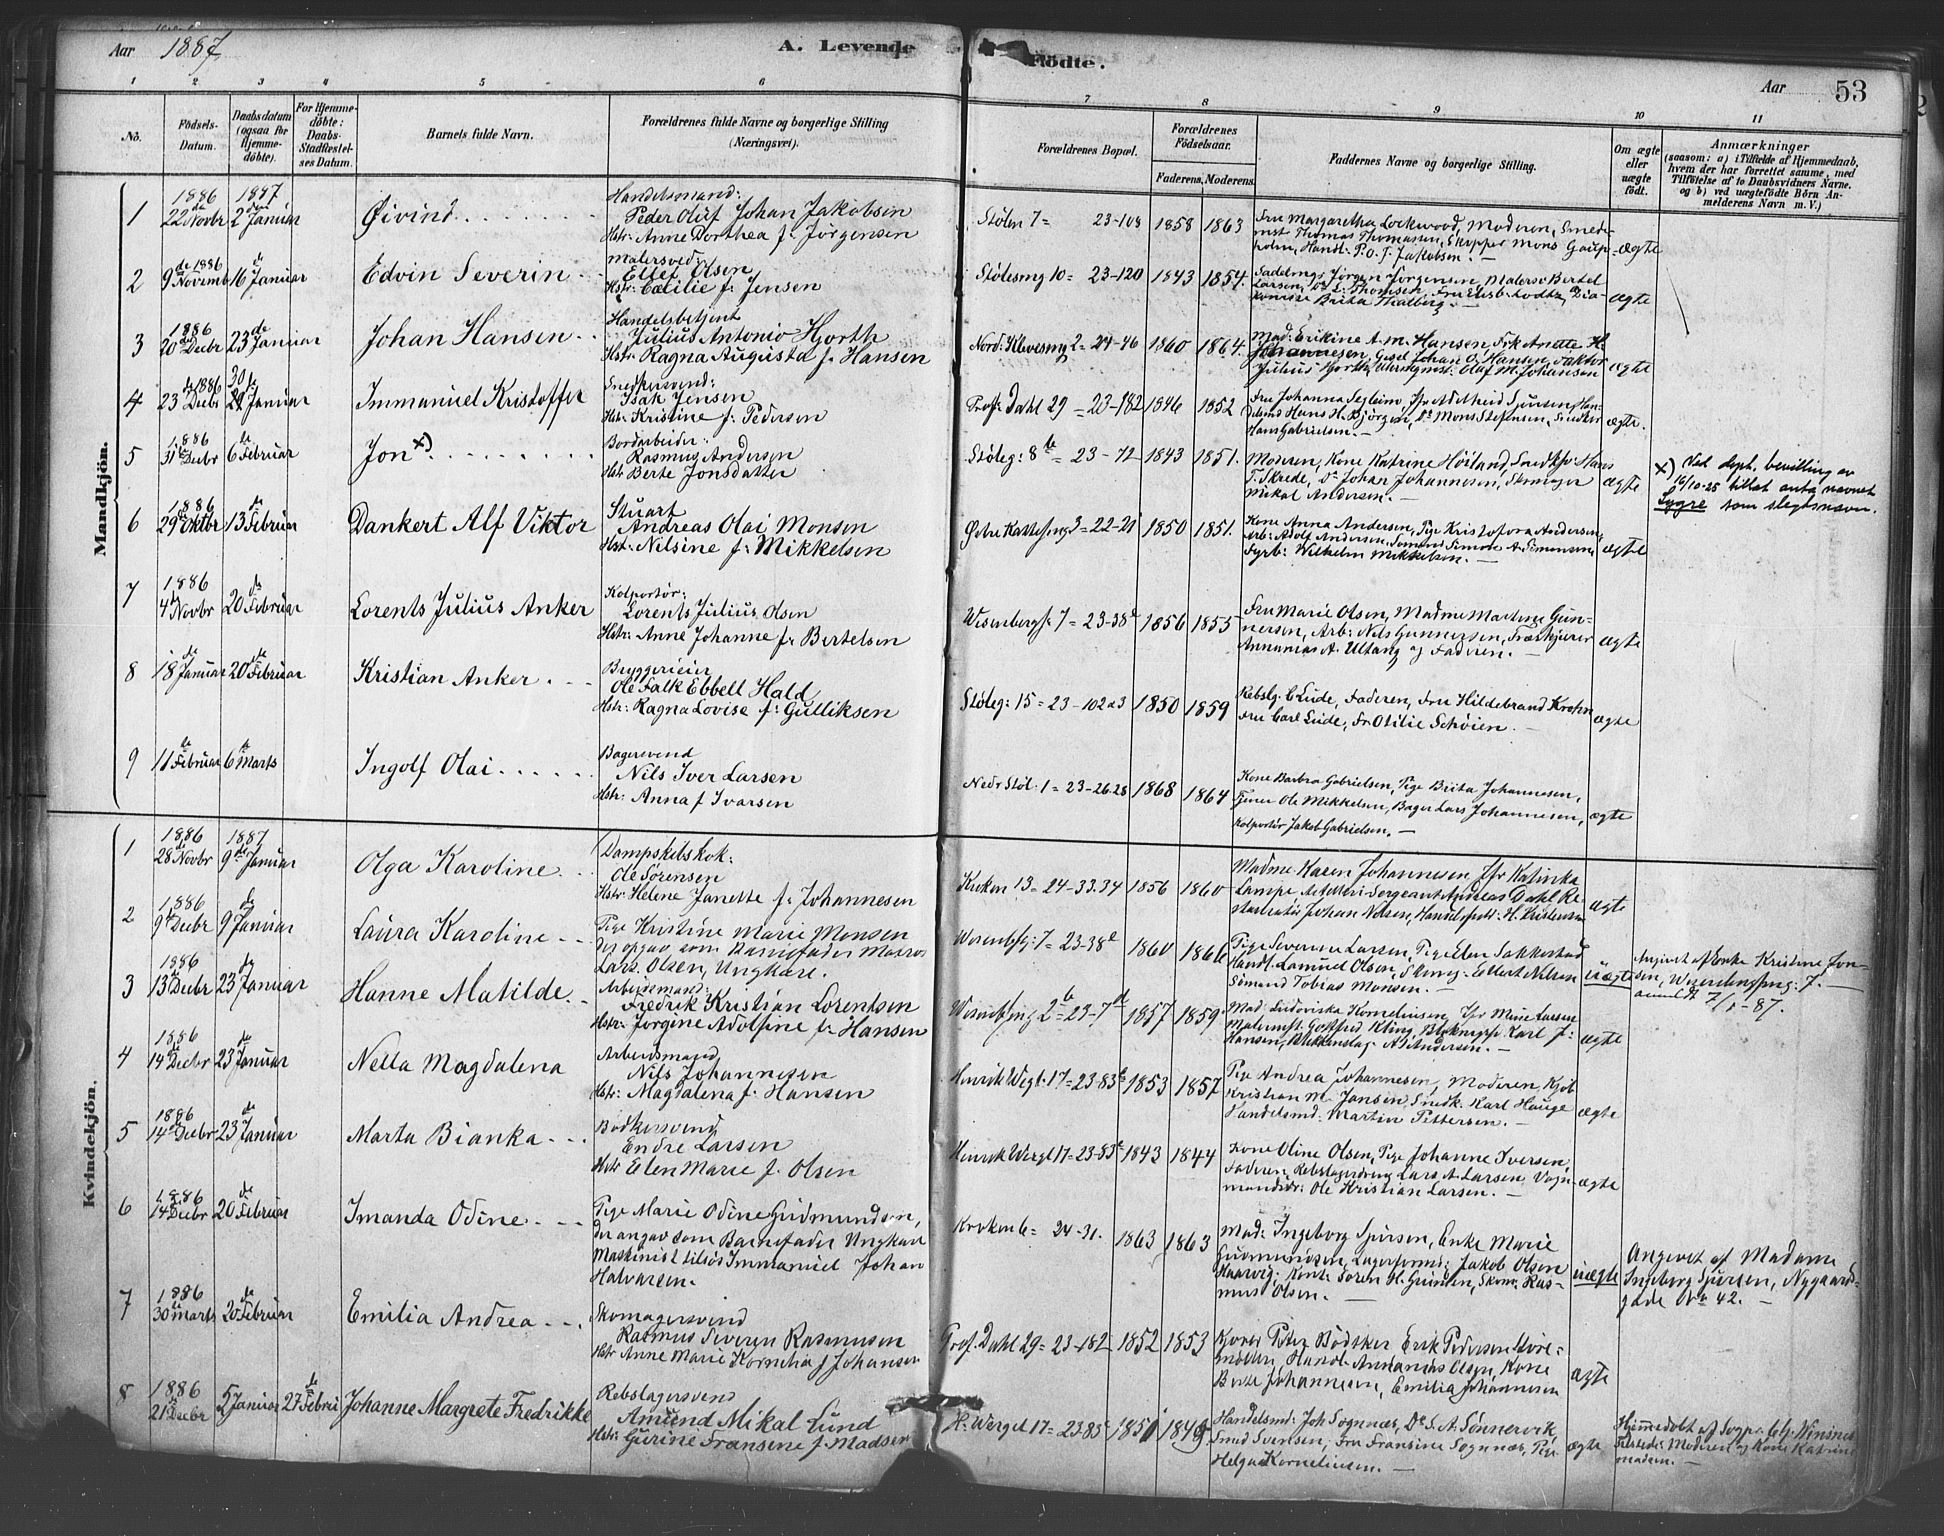 Aar 1887
A. Levende Födte.
Aar 53
1 2 3 4 5 6 7 8 9 10 11
No.
Födsels-
Datum.
Daabsdatum
(ogsaa for
Hjemme-
döbte).
For Hjemme-
döbte:
Daabs-
Stadfæstel-
ses Datum.
Barnets fulde Navn.
Forældrenes fulde Navne og borgerlige Stilling
(Næringsvei).
Forældrenes Bopæl.
Forældrenes
Födselsaar.
Faderens. Moderens.
Faddernes Navne og borgerlige Stilling.
Om ægte
eller
uægte
födt.
Anmærkninger
(saasom: a) i Tilfælde af Hjemmedaab,
hvem der har forrettet samme, med
Tilföielse af to Daabsvidners Navne.
og b) ved uægtefödte Börn An-
melderens Navn m. V.)
Mandkjön.
1
1886 1887
22de Novbr 2den Januar
Øivind
Handelsmand:
Peder Oluf Johan Jakobsen
Hstr: Anne Dorthea f. Jörgensen
Stölen 7 = 23-108 1858 1863
Fru Margaretha Lockwood, Moderen, Smed-
mst Thomas Thomassen, Skipper Mons Gaup-
holm, Handl: P. O. J. Jakobsen.
ægte
2
9de 1886 Novemb 16de Januar
Edvin Severin
Malersvend
Ellef Olsen
Hstr: Cæcilie f. Jensen
Stölesmg 10 = 23-120 1843 1854.
Sadelmgr Jörgen Jörgensen, Malersv Bertel
Larsen, Thomsen, Fru Elisb. Lodtz, Dia-
konisse Brita Thalberg.
ægte
3
1886
20de Decbr 23de Januar
Johan Hansen
Handelsbetjent
Julius Antonio Hjorth
Hstr: Ragna Augusta f. Hansen
Nord. Klevesmg 2 = 24-46 1860 1864.
Mad: Erikine A. M. Hansen, Frk Anette H.
Johannesen, Gesel Johan O. Hansen, Faktor
Julius Hjorth, Uhrmgmst: Olaf M. Johansen
ægte
4
de 1886
23 Decbr 30 Januar
Immanuel Kristoffer
Snedkersvend:
Isak Jensen
Hstr: Kristine f. Pedersen
Prof: Dahl 29 = 23-182 1846 1852
Fru Johanna Segleim, Jfr Adelheid Sjursen, Han-
delsmd Hans H. Björgen, Do Mons Stefensen, Snedker
Hans Gabrielsen.
ægte.
5
1886
31te Decbr 6de Februar
Jon x)
Bordarbeider:
Rasmus Andersen
Hstr Berte Jonsdatter
Stöleg: 8b = 23-72 1843 1851.
Moderen, Kone Katrine Höiland, Snedk: Hans
T. Skrede, Do Johan Johannesen, Skomager
Mikal Andersen.
ægte
x) Ved dept. bevilling av
16/10-25 tillat anta navnet
Sygre som slegtsnavn.
6
1886
29de Oktbr 13de Februar
Dankert Alf Viktor
Stuart
Andreas Olai Monsen
Hstr: Nilsine f. Mikkelsen
Östre Kattesmg 3 = 22-21 1850 1851.
Kone Anna Andersen, Pige Kristofora Andersen,
Arb: Adolf Andersen, Sömand Simon A. Simonsen,
Fyrb: Wilhelm Mikkelsen.
ægte
7
1886
4de Novbr 20de Februar
Lorents Julius Anker
Kolportör:
Lorents Julius Olsen
Hstr: Anne Johanne f. Bertelsen
Wesenbergs: 7 = 23-38d 1856 1855
Fru Marie Olsen, Madme Martine Gun-
nersen, Arb: Nils Gunnersen, Træskjærer
Annanias A. Ultang og Faderen.
ægte
8
18de Januar 20de Februar
Kristian Anker
Bryggerieier
Ole Falk Ebbell Hald
Hstr: Ragna Lovise f. Gulliksen
Stöleg: 15 = 23-102a3 1850 1859
Rebslg. C Lude, Faderen, Fru Hildebrand Krohn
Fru Carl Lude, Fr Otilie Schöien.
ægte
9
11de Februar 6te Marts
Ingolf Olai
Bagersvend
Nils Iver Larsen
Hstr: Anna f. Ivarsen
Nedr Stöl. 1 = 23-26.28 1868 1864
Kone Barbra Gabrielsen, Pige Brita Johannesen,
Tjener Ole Mikkelsen, Bager Lars Johannesen,
Kolportör Jakob Gabrielsen.
ægte
Kvindekjön.
1
1886 1887
28de Novbr 9de Januar
Olga Karoline
Dampskibskok:
Ole Sörensen
Hstr Helene Janette f. Johannesen
Kroken 13 = 24-33.34 1856 1860
Madme Karen Johannesen, Jfr Katinka
Lampe, Artilleri-Sergeant Andreas Dahl, Re-
stauratör Johan Nilsen, Handelsbetj: H. Kristensen
ægte
2
1886
9de Decbr 9de Januar
Laura Karoline
Pige Kristine Marie Monsen
der opgav som Barnefader Matros
Lars Olsen, Ungkarl.
Wesenbsg: 7 = 23-38d 1860 1866
Pige Severine Larsen, Pige Elen Sakkestad
Handl. Samuel Olsen, Skomg. Ellert Nilsen
Sömand Tobias Monsen.
uægte
Angivet af Enke Kristine Jon-
sen, Wesenbergsmg: 7.
anmeldt 7/1-87.
3
1886
13de Decbr 23de Januar
Hanne Matilde
Arbeidsmand:
Fredrik Kristian Lorentsen
Hstr: Jörgine Adolfine f. Hansen
Wesenbsmg 2b = 23-7d 1857 1859
Mad: Ludovika Kornelinsen, Jfr Mine Larsen
Malermst. Gottfrid Kling, Karl J.
Hansen, A. Andersen.
ægte
4
1886
14de Decbr 23de Januar
Nella Magdalena
Arbeidsmand
Nils Johannesen
Hstr: Magdalena f. Hansen
Henrik Wergl: 17 = 23-83b 1853 1857
Pige Andrea Johannesen, Moderen, Kjöb
Kristian M. Jansen, Snedk. Karl Hauge
Handelsmd: Martin Pettersen.
ægte
5
1886
14de Decbr 23de Januar
Marta Bianka
Bödkersvend
Endre Larsen
Hstr Elen Marie f. Olsen
Henrik Wergl 17 = 23-83b 1843 1844
Kone Oline Olsen, Pige Johanne Iversen,
Faderen, Rebslagerdreng Lars A. Larsen, Vogn-
mandsdr: Ole Kristian Larsen.
ægte
6
1886
14de Decbr 20de Februar
Imanda Odine
Pige Marie Odine Gudmundsen,
der angav som Barnefader Ungkarl
Maskinist tilsös Immanuel Johan
Halvorsen.
Kroken 6 = 24-31. 1863 1863
Mad: Ingeborg Sjursen, Enke Marie
Gudmundsen, Lagerformd: Jakob Olsen
Haarvig, Kont: Sören H. Gundersen, Skom: Ras-
mus Olsen.
uægte
Angivet af Madame
Ingeborg Sjursen, Nygaards-
gade No 42.
7
1886
30de Marts 20de Februar
Emilia Andrea
Skomagersvend
Rasmus Severin Rasmussen
Hstr Anne Marie Kornelia f. Johansen
Prof. Dahl 29 = 23-182 1852 1853
Peter Bödtker, Erik Pedersen Store-
möllen, Handl: Annanias Olsen, Kone
Berte Johannesen, Emilia Johannesen
ægte
8
1886
21de Decbr 5 Januar 27de Februar
Johanne Margrete Fredrikke
Rebslagersvend
Amund Mikal Lund
Hstr: Gurine Fransine f. Madsen
H. Wergel 17 = 23-85 1851 1849
Handelsmd: Joh Sognnæs, Do S. A. Sönnervik,
Smed Svensen, Fru Fransine Sognnæs, Pige
Helga Kornelinsen.
ægte
Hjemmedöbt af Sogpr. Winsnes
Tilstede: Moderen og Kone Katrine
Madsen.